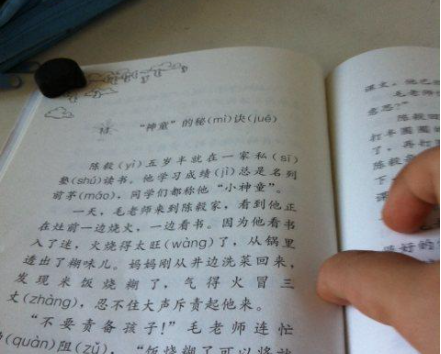 “神童”的秘(mì)诀(jué)
陈毅(yì)五岁半就在一家私(sī)
塾(shú)读书。他学习成绩(jì)总是名列
前茅(máo),同学们都称他“小神童”。
一天,毛老师来到陈毅家,看到他正
在灶前一边烧火,一边看书。因为他看书
入了迷,火烧得太旺(wàng)了,从锅里
透出了糊味儿。妈妈刚从井边洗菜回来,
发现米饭烧糊了,气得火冒三
丈(zhàng),忍不住大声斥责起他来。
“不要责备孩子!”毛老师连忙
(quàn)阻(zǔ),“饭烧糊了可以将就
课文,他已
毛老师
意思?”
陈毅
打开圈圈
了,再打
陈毅
下
课
陈好的